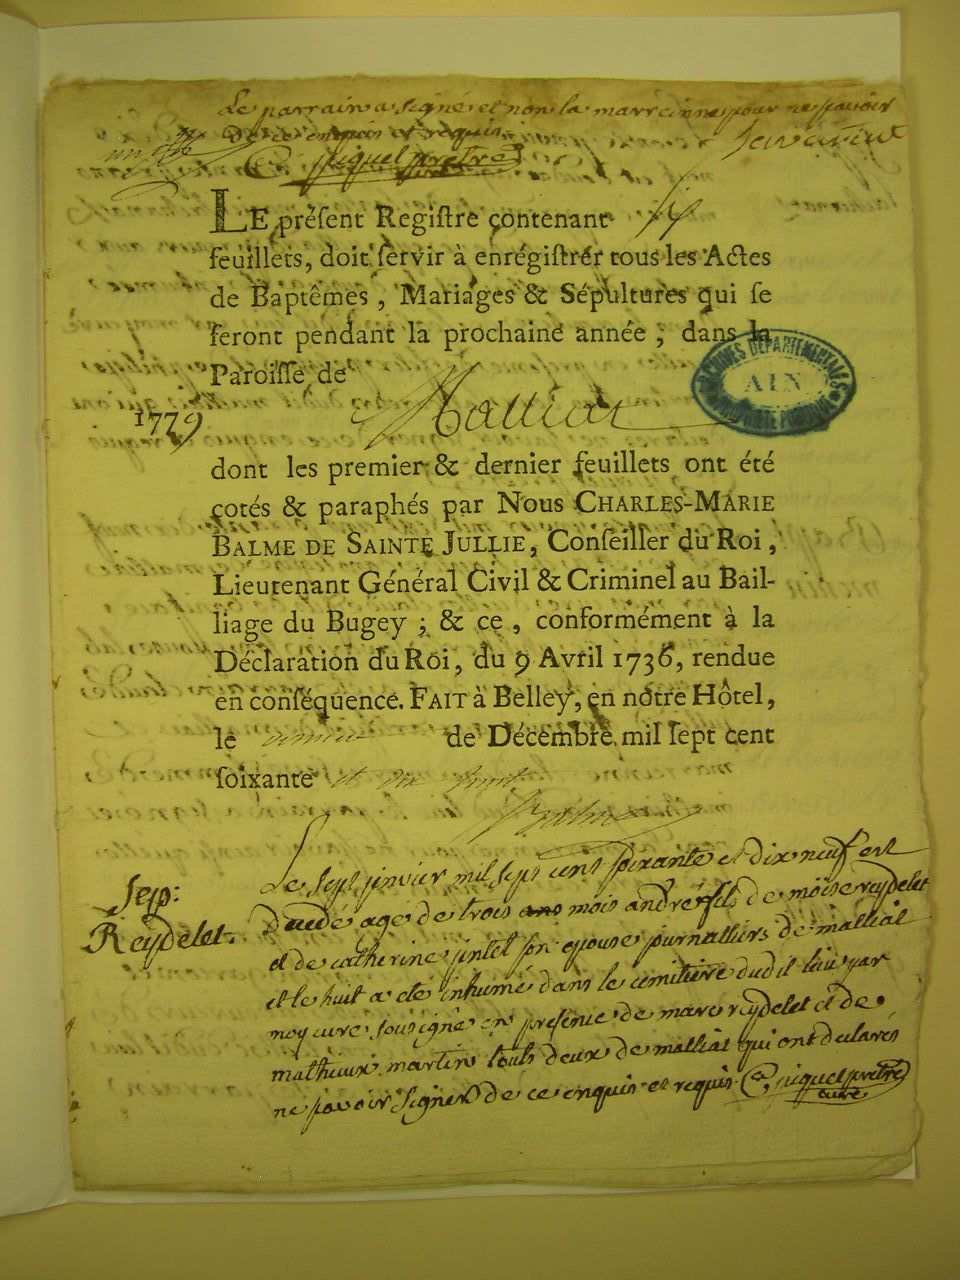 Le parrain a signé et non la marreinne pour ne savoir
de ce enquis et requis
piquel prètre
LE préſent Regiſtre contenant ſix
feuillets, doit ſervir à enrégiſtrer tous les Actes
de Baptêmes, Mariages & Sépultures qui ſe
feront pendant la prochaine année, dans la
Paroiſſe de
ARCHIVES DÉPARTEMENTALES
AIN
PROPRIÉTÉ PUBLIQUE
1779 Malliat
dont les premier & dernier feuillets ont été
cotés & paraphés par Nous CHARLES-MARIE
BALME DE SAINTE JULLIE, Conſeiller du Roi,
Lieutenant Général Civil & Criminel au Bail-
liage du Bugey ; & ce, conformément à la
Déclaration du Roi, du 9 Avril 1736, rendue
en conſéquence. FAIT à Belley, en notre Hôtel,
le de Décembre mil ſept cent
ſoixante et dix huit
Balme
Sep:
Reydelet.
Le sept janvier mil sept cent soixante et dix neuf est
décedé age de trois ans mois andré fils de moise reydelet
et de catherine pintel son epouse journalliers de malliat
et le huit a eté inhumé dans le cemitiere dudit lieu par
moy curé sousigné en presence de marc reydelet et de
mathieux martin touts deux de malliat qui ont declarés
ne pavoir signer de ce enquis et requis piquel prètre
curé